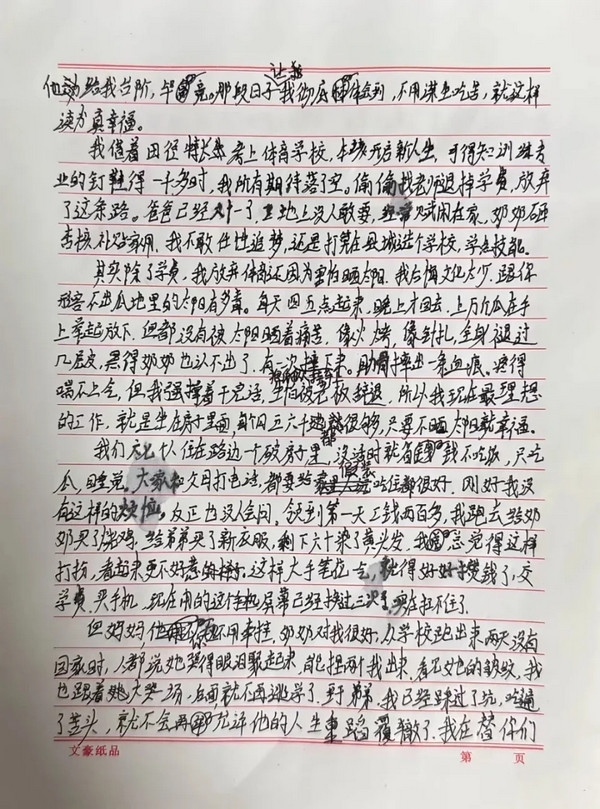 他动给我台阶,毕竟。那段日子让我彻底体会到,不用谋生吃苦,就这样
读书真幸福。
我借着田径特长考上体育学校,本该开启新人生,可得知训练专
业的钉鞋得一千多时,我所有期待落了空。偷偷找老师退掉学费,放弃
了这条路。爸爸已经八十了,工地上没人敢要,经常赋闲在家,奶奶
补贴家用。我不敢任性追梦,还是打算在县城选个学校,学点技能。
其实除了学费,我放弃体育还因为害怕晒太阳。我台词文化太少,跟你
形容不出瓜地里的太阳有多毒。每天四五点起来,晚上才回去,上万斤瓜在手
上拿起放下,但都没有被太阳晒着痛苦,像火烤,像针扎,全身褪过
几层皮,黑得奶奶也认不出了。有一次摔下来,肋骨摔出一条血痕,疼得
喘不上气,但我强撑着干完活,生怕被老板辞退。所以我现在最理想
的工作,就是坐在房子里面,每个月五六千就很够,只要不晒太阳就幸福。
我们六七个人住在路边一个破房子里,没活时就省钱不吃饭,只吃
瓜,睡觉。大家和父母打电话,都要假装吃住都很好。刚好我没
有这样的烦恼。反正也没人会问。领到第一天工钱两百多,我跑去给奶
奶买了烧鸡,给弟弟买了新衣服,剩下六十染了黄头发,我总觉得这样
打扮,看起来更不好惹。这样大手笔花一会,就得好好攒钱了,交
学费,买手机,现在用的这个手机屏幕已经换过三次了,实在扛不住了。
但妈妈他不用牵挂,奶奶对我很好。从学校跑出来两天没有
回家时,人都说她哭得眼泪聚起来,能捏两个我出来,看了她的皱纹,我
也跟着她大哭一场,后面就不再逃学了。至于弟弟,我已经踩过了坑,吃遍
了苦头,就不会再允许他的人生重蹈覆辙了。我在替你们
文豪纸品 第 页